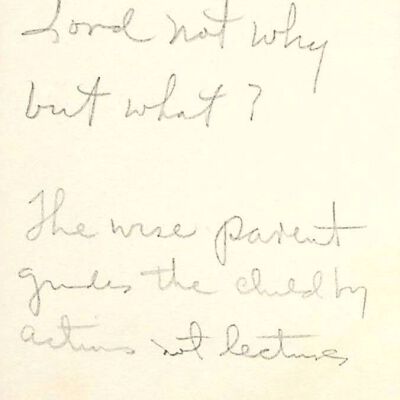 Lord not why
but what?
The wise parent
guides the child by
actions not lectures